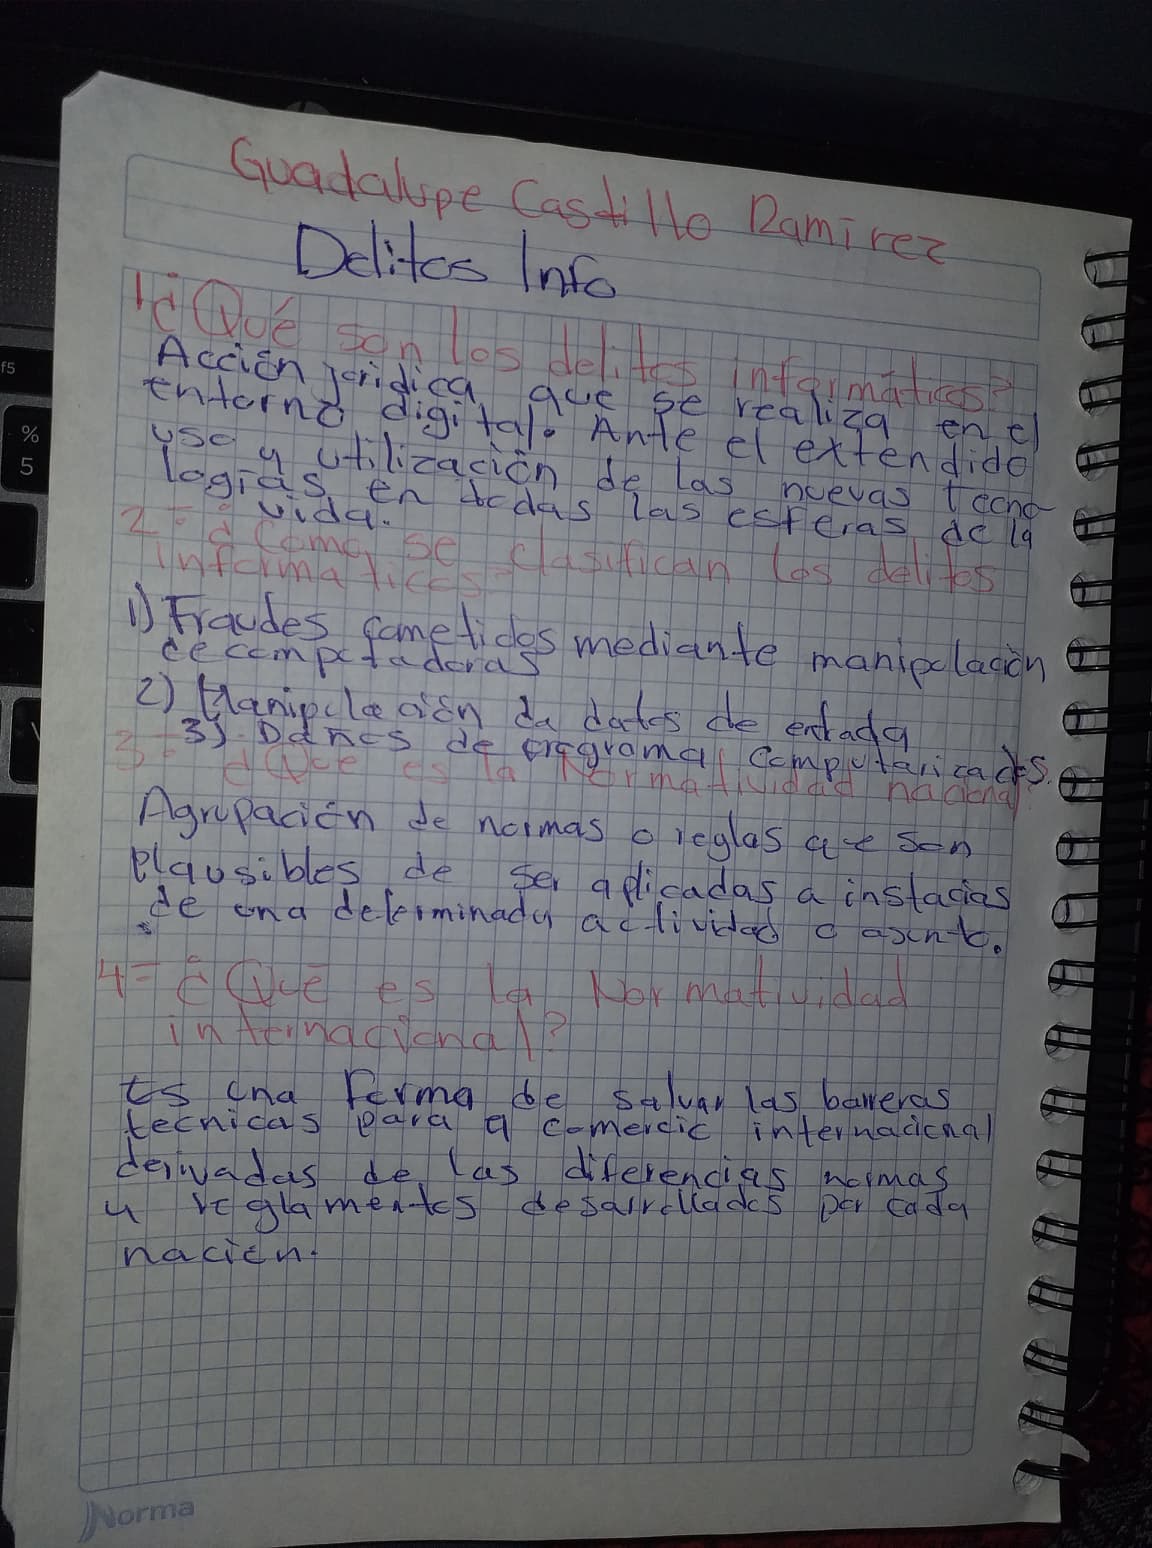 Guadalupe Castillo Ramirez
Delitos Info
1¿Qué son los delitos informáticos?
Acción juridica que se realiza en el
entorno digital. Ante el extendido
uso y utilización de las nuevas tecno-
logias en todas las esferas de la
vida.
2= ¿Como se clasifican los delitos
informaticos
1) Fraudes cometidos mediante manipulación
de computadoras
2) Manipulación da datos de entada
3) Danos de programa computarizados.
3= ¿Que es la Normatividad nacional
Agrupación de normas o reglas que son
plausibles de ser aplicadas a instacias
de una determinada actividad o asunto.
4= ¿Qué es la Normatividad
internacional?
Es una forma de salvar las barreras
tecnicas para a comercio internacional
derivadas de las diferencias normas
y reglamentos desarrollados por cada
nacion.
Norma
f5
%
5